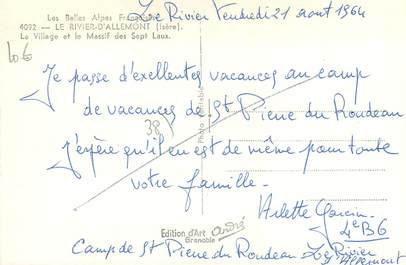 Le Rivier Vendredi 21 août 1964
Les Belles Alpes Françaises
4092 - LE RIVIER-D'ALLEMONT (Isère).
Le Village et le Massif des Sept Laux.
Je passe d'exellentes vacances au camp
de vacances de St Pierre du Roudeau
38
J'espère qu'il en est de même pour toute
votre famille-
Arlette Garcin
4e B6
Edition d'Art André
Grenoble
Camp de St Pierre du Roudeau Le Rivier
d'Allemont